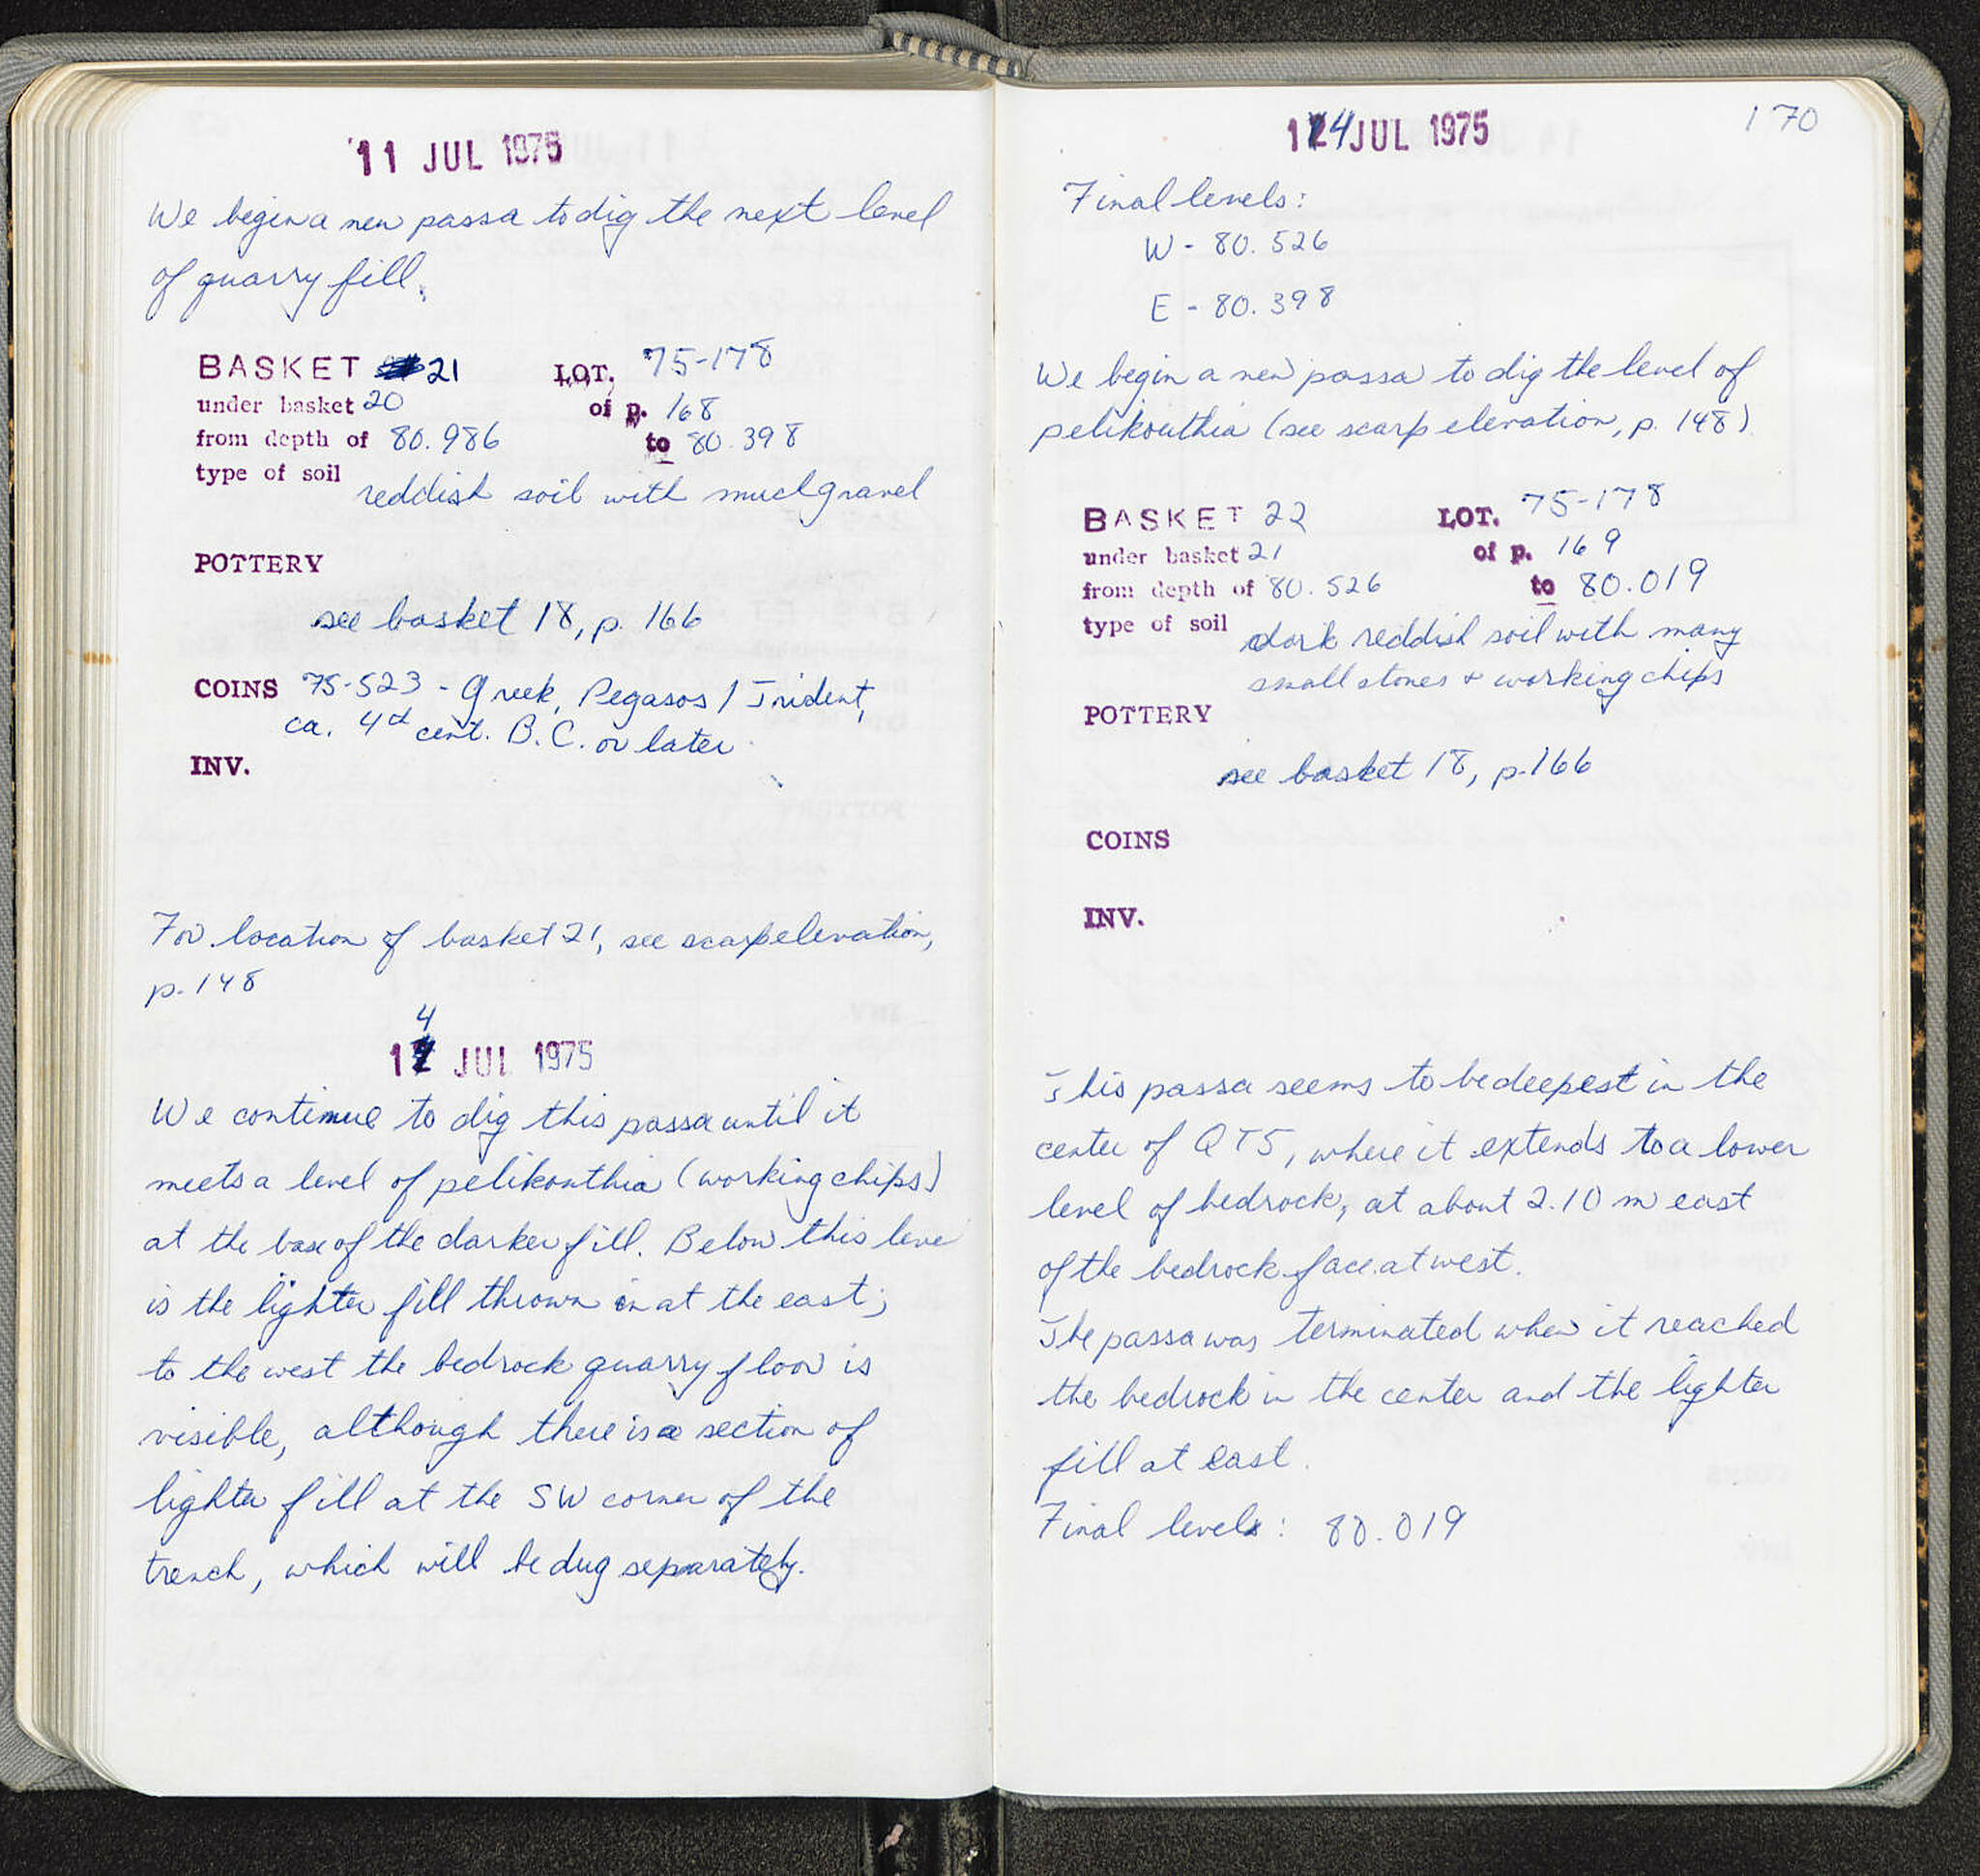 11 JUL 1975
We begin a new passa to dig the next level
of quarry fill.
BASKET 21 LOT. 75-178
under basket 20 of p. 168
from depth of 80.986 to 80.398
type of soil reddish soil with much gravel
POTTERY
see basket 18, p. 166
COINS 75-523 - Greek, Pegasos / Trident,
ca. 4th cent. B.C. or later
INV.
For location of basket 21, see scarp elevation,
p. 148
14 JUL 1975
We continue to dig this passa until it
meets a level of pelikouthia (working chips)
at the base of the darker fill. Below this leve
is the lighter fill thrown in at the east;
to the west the bedrock quarry floor is
visible, although there is a section of
lighter fill at the SW corner of the
trench, which will be dug separately.
14 JUL 1975 170
Final levels:
W - 80.526
E - 80.398
We begin a new passa to dig the level of
pelikouthia (see scarp elevation, p. 148)
BASKET 22 LOT. 75-178
under basket 21 of p. 169
from depth of 80.526 to 80.019
type of soil dark reddish soil with many
small stones + working chips
POTTERY
see basket 18, p. 166
COINS
INV.
This passa seems to be deepest in the
center of QT5, where it extends to a lower
level of bedrock, at about 2.10 m east
of the bedrock face at west.
The passa was terminated when it reached
the bedrock in the center and the lighter
fill at east.
Final levels: 80.019